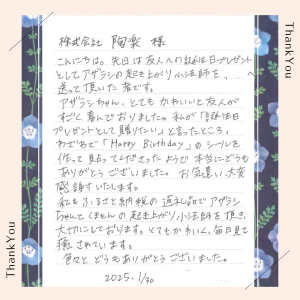 ThankYou
株式会社 陶楽 様
こんにちは。先日は友人への誕生日プレゼント
としてアザラシの起き上がり小法師を、
送って頂いた者です。
アザラシちゃん、とてもかわいいと友人が
すごく喜んでおりました。私が「誕生日
プレゼントとして贈りたい」と言ったところ、
わざわざ「Happy Birthday」のシールを
作って貼って下さったようで本当にどうも
ありがとうございました。お気遣い、大変
感謝いたします。
私もふるさと納税の返礼品でアザラシ
ちゃんとくまさんの起き上がり小法師を頂き、
大切にしております。とてもかわいく、毎日見て
癒されています。
色々とどうもありがとうございました。
2025. 1/30
ThankYou